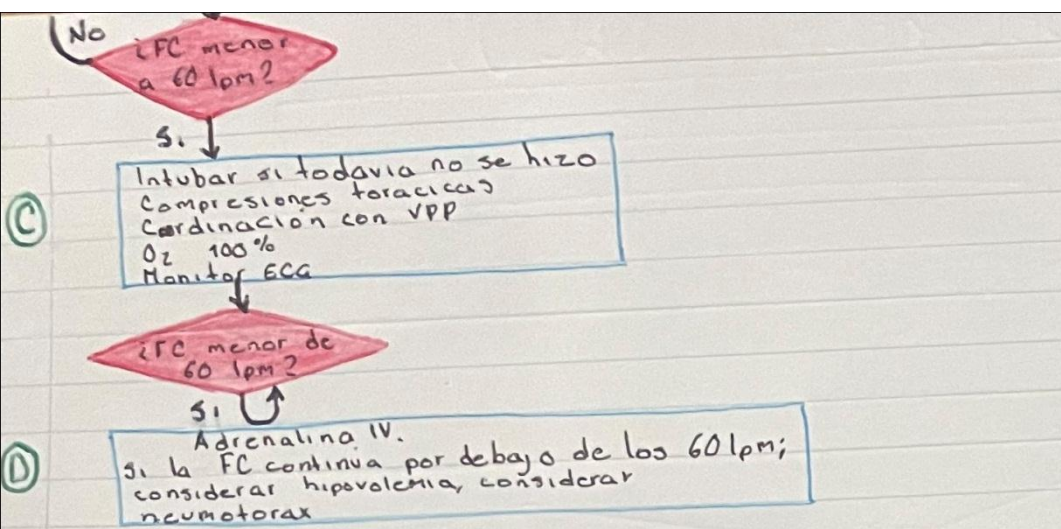 No
¿FC menor
a 60 lpm?
Si
Intubar si todavia no se hizo
Compresiones toracicas
Coordinación con VPP
O2 100%
Monitor ECG
C
¿FC menor de
60 lpm?
Si
Adrenalina IV.
Si la FC continua por debajo de los 60 lpm;
considerar hipovolemia, considerar
neumotorax
D